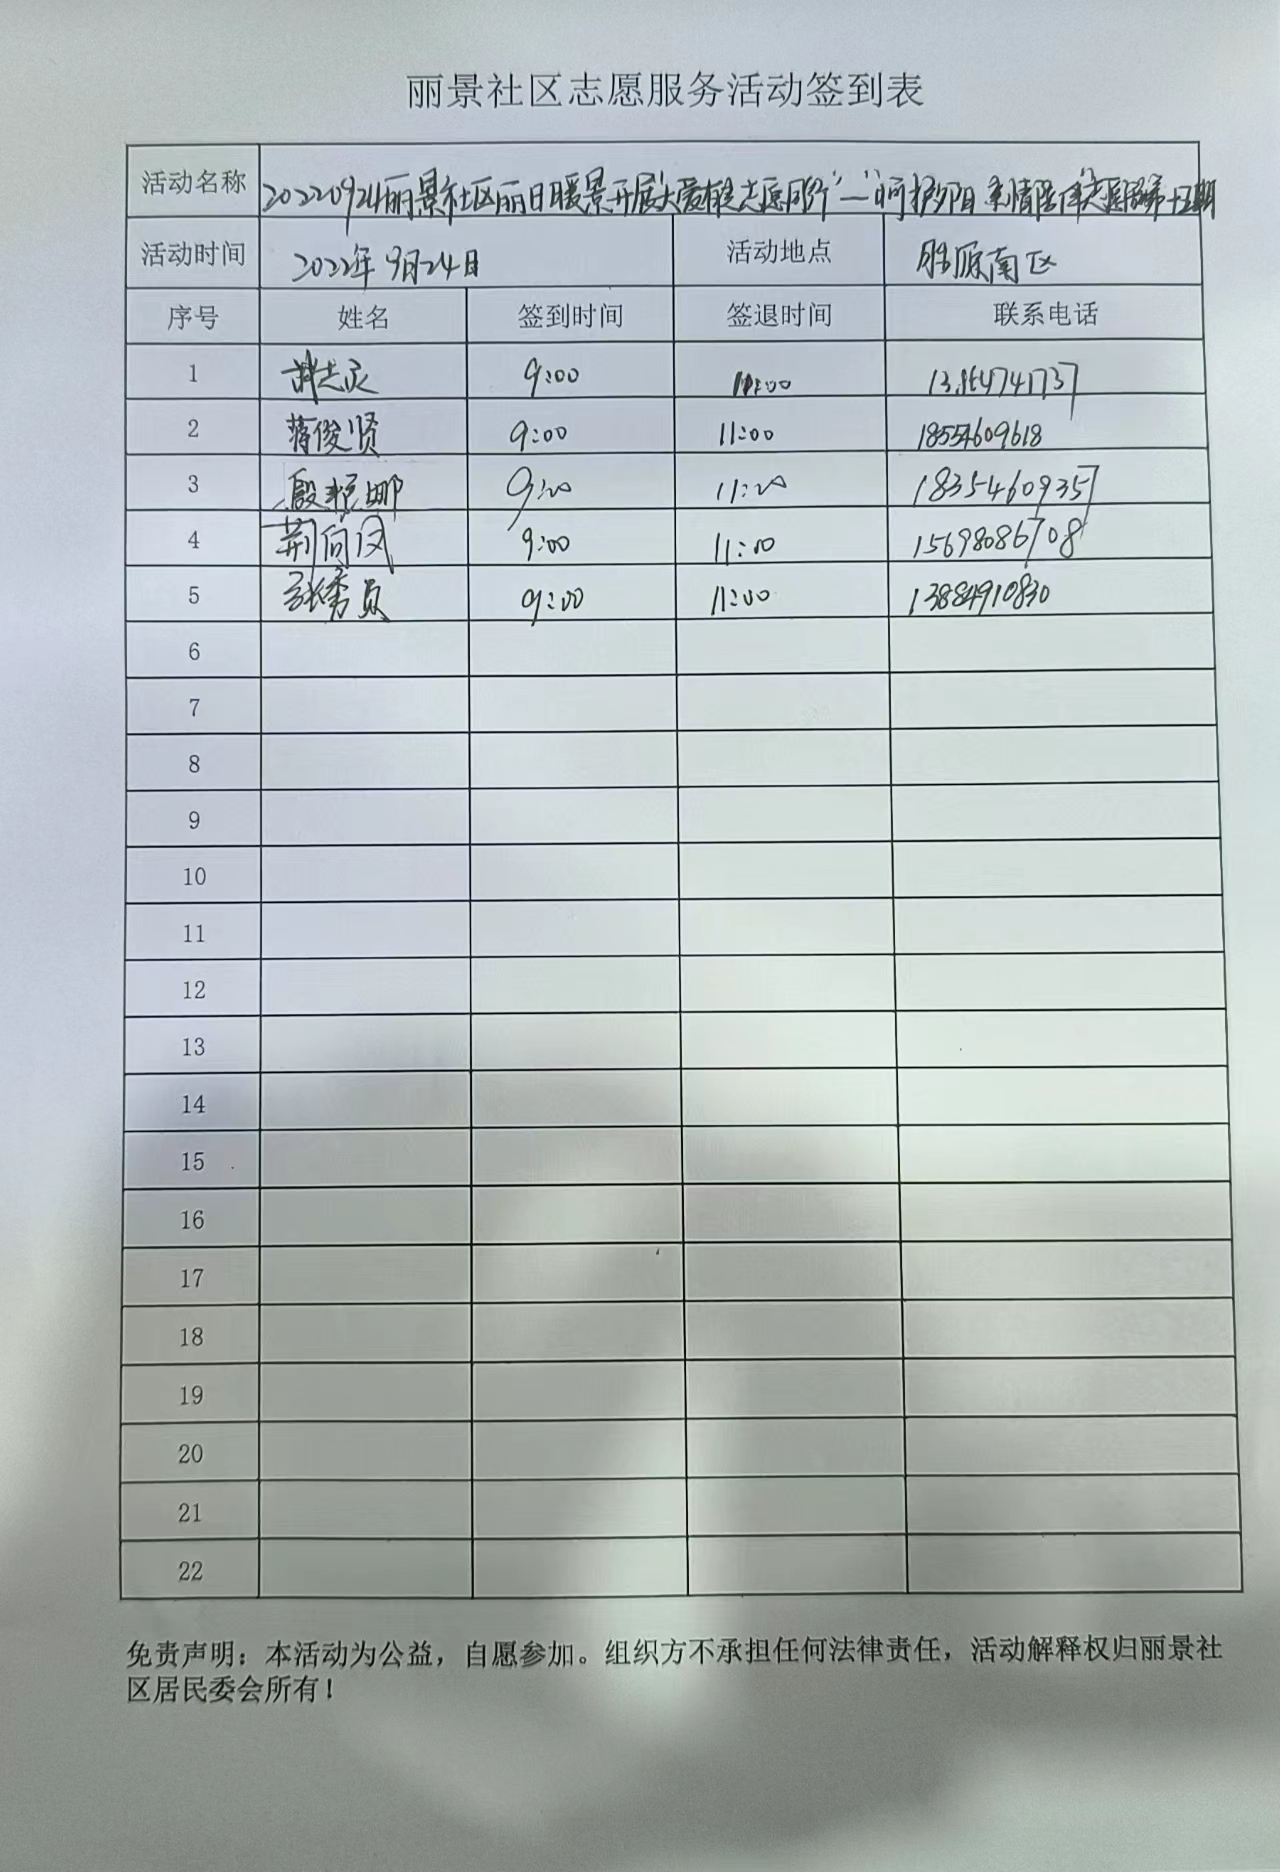 丽景社区志愿服务活动签到表
活动名称 20220924丽景社区丽日暖景开展"大爱有志愿同行"—"呵护夕阳
活动时间 2022年9月24日 活动地点 胜原南区
序号 姓名 签到时间 签退时间 联系电话
1 9:00 11:00 13864741737
2 蒋俊贤 9:00 11:00 18554609618
3 殷艳娜 9:00 11:00 18354609357
4 荆向凤 9:00 11:00 15698086708
5 张秀员 9:00 11:00 13884910830
6
7
8
9
10
11
12
13
14
15
16
17
18
19
20
21
22
免责声明：本活动为公益，自愿参加。组织方不承担任何法律责任，活动解释权归丽景社
区居民委会所有！